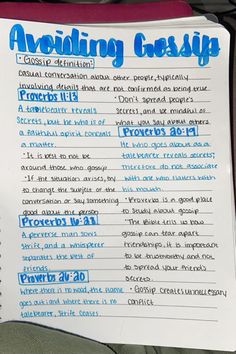 Avoiding Gossip
• Gossip definition:
casual conversation about other people, typically
involving details that are not confirmed as being true.
Proverbs 11:13
A talebearer reveals
secrets, but he is of
a faithful spirit conceals
a matter.
• It is best to not be
around those who gossip.
• If the situation arises, try
to change the subject of the
conversation or say something
good about the person
Proverbs 16:28
A perverse man sows
strife, and a whisperer
separates the best of
friends.
Proverbs 26:20
Where there is no wood, the flame
goes out; and where there is no
talebearer, strife ceases.
• Don't spread people's
secrets, and be mindful of
what you say about others
Proverbs 20:19
He who goes about as a
talebearer reveals secrets;
Therefore do not associate
with one who flatters with
his mouth.
• Proverbs is a good place
to study about gossip
• The Bible tells us how
gossip can tear apart
friendships, it is important
to be trustworthy and not
to spread your friends
secrets.
• Gossip creates unnecessary
conflict